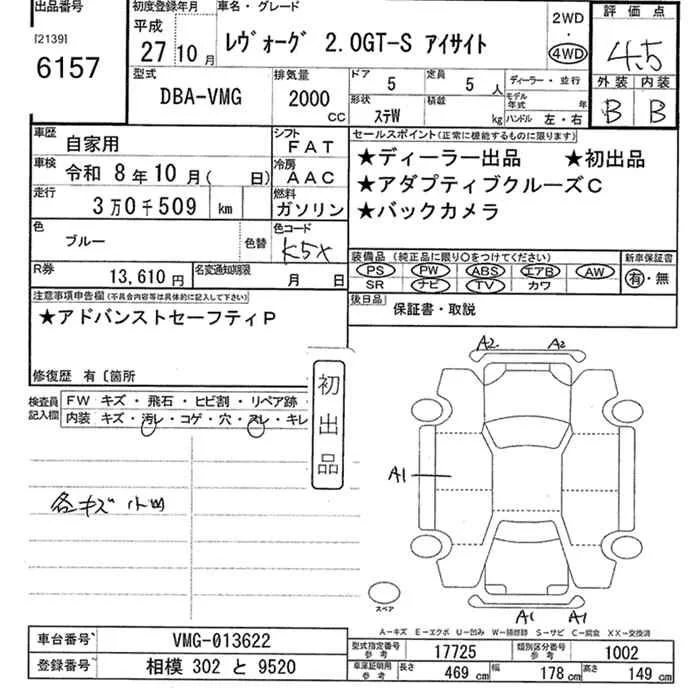 出品番号
[2139]
6157
初度登録年月
平成
27 10月
車名・グレード
レヴォーグ 2.0GT-S アイサイト
2WD
・
4WD
評価点
4.5
外装 内装
B B
型式
DBA-VMG
排気量
2000
CC
ドア
5
定員
5 人
形状
ステW
積載
kg
ディーラー・並行
モデル年式 年
ハンドル 左・右
車歴
自家用
シフト
FAT
車検
令和 8年10月( 日)
冷房
AAC
走行
3万0千509 km
燃料
ガソリン
色
ブルー
色替
色コード
K5X
R券
13,610円
名変通知期限
月 日
セールスポイント(正常に機能するものに限ります)
★ディーラー出品 ★初出品
★アダプティブクルーズC
★バックカメラ
装備品 (純正品に限り○をつけてください)
PS PW ABS エアB AW
SR ナビ TV カワ
新車保証書
有・無
後日品
保証書・取説
注意事項申告欄(不具合内容等は具体的に記入して下さい)
★アドバンストセーフティP
修復歴 有〔箇所
検査員
記入欄
FW キズ・飛石・ヒビ割・リペア跡
内装 キズ・汚レ・コゲ・穴・スレ・キレ
初出品
各キズ小凹
A2 A2
A1
A1 A1
スペア
A-キズ E-エクボ U-凹み W-補修跡 S-サビ C-腐食 XX-交換済
車台番号
VMG-013622
登録番号
相模 302 と 9520
型式指定番号
参考
17725
類別区分番号
参考
1002
車庫証明用
参考
長さ
469 cm
幅
178 cm
高さ
149 cm